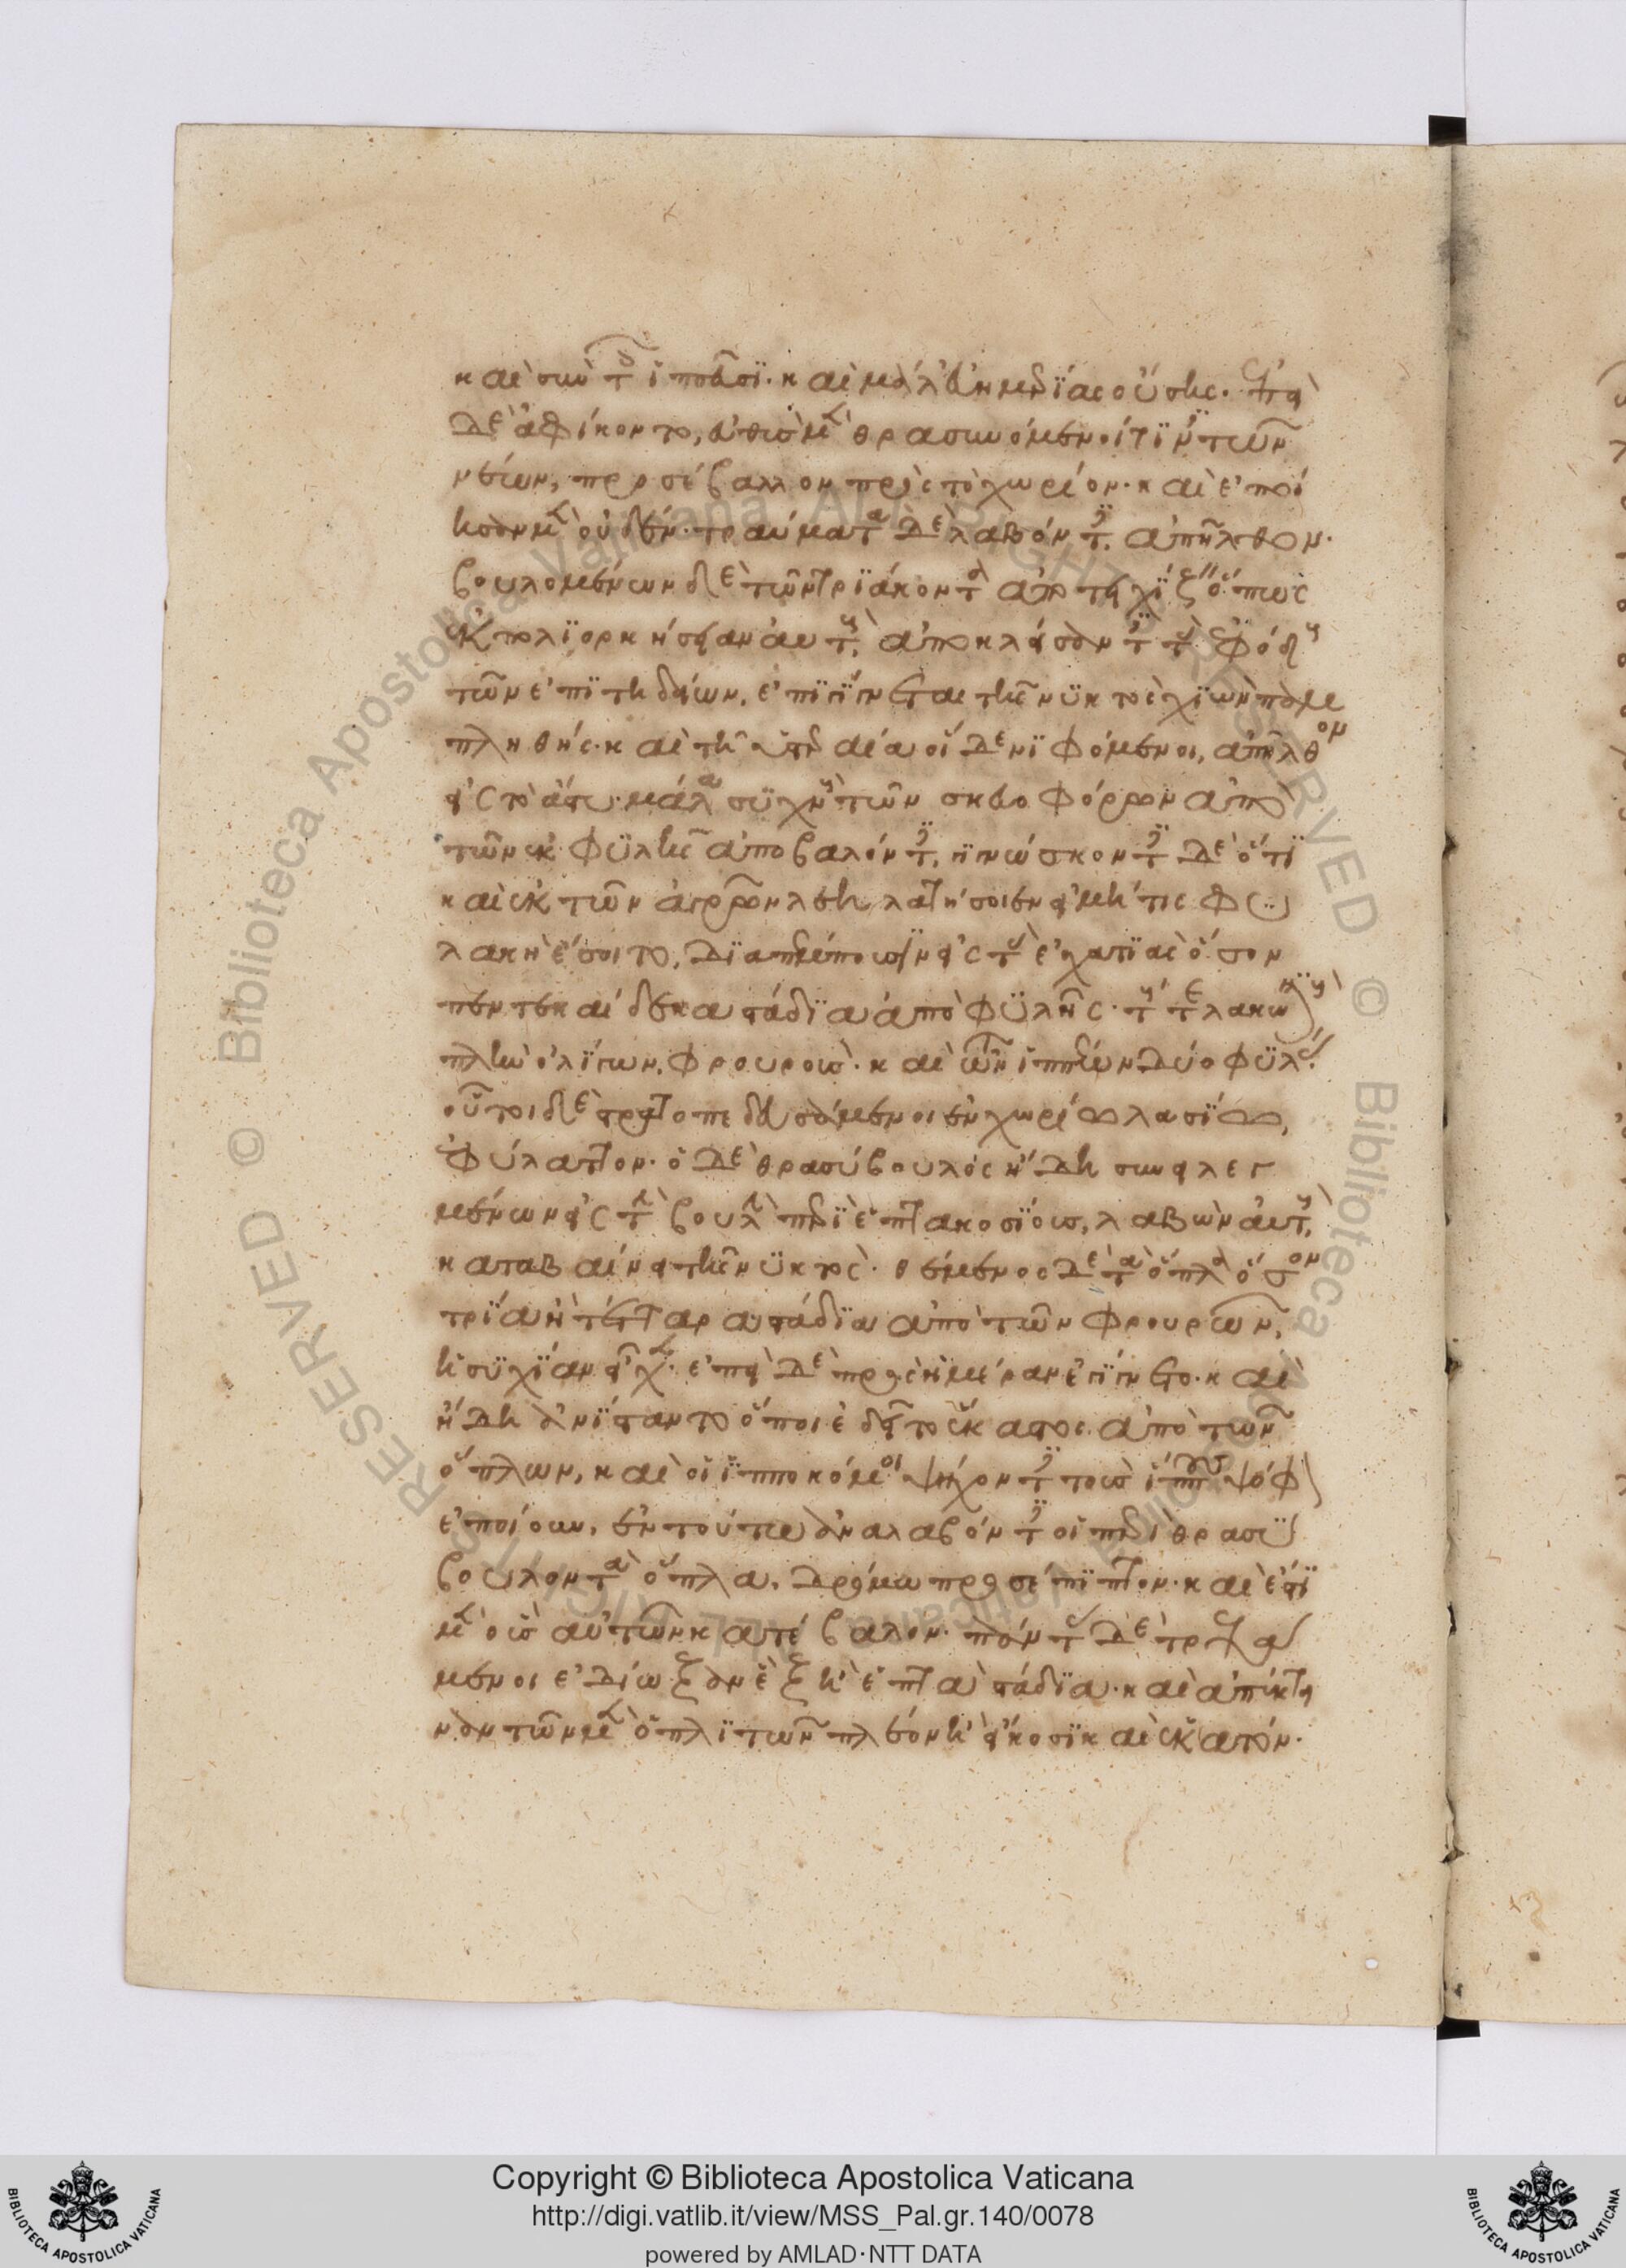 καὶ σὺν τοῖς ἱππεῦσι. καὶ μάλ' εὐημερίας οὔσης. ἐπεὶ
δὲ ἀφίκοντο, εὐθὺς μὲν θρασυνόμενοί τινες τῶν
νέων, προσέβαλλον πρὸς τὸ χωρίον. καὶ ἐποί
ησαν μὲν οὐδέν. τραύματα δὲ λαβόντες, ἀπῆλθον.
βουλομένων δὲ τῶν τριάκοντα ἀποτειχίζειν ὅπως
ἐκπολιορκήσειαν αὐτοὺς, ἀποκλείσαντες τὰς ἐφόδους
τῶν ἐπιτηδείων, ἐπιγίνεται τῆς νυκτὸς χιὼν παμ
πληθής. καὶ τῇ ὑστεραίᾳ οἱ δὲ νιφόμενοι, ἀπῆλθον
εἰς τὸ ἄστυ. μάλα συχνοὺς τῶν σκευοφόρων ἀπὸ
τῶν ἐκ φυλῆς ἀποβαλόντες. γινώσκοντες δὲ ὅτι
καὶ ἐκ τῶν ἀγρῶν λεηλατήσοιεν εἰ μή τις φυ
λακὴ ἔσοιτο, διαπέμπουσιν εἰς τὰς ἐσχατιὰς ὅσον
πεντεκαίδεκα στάδια ἀπὸ φυλῆς. τούς τε λακωνικοὺς
πλὴν ὀλίγων, φρουρούς. καὶ τῶν ἱππέων δύο φυλάς.
οὗτοι δὲ στρατοπεδευσάμενοι ἐν χωρίῳ λασίῳ,
ἐφύλαττον. ὁ δὲ θρασύβουλος ἤδη συνειλεγ
μένων εἰς τὴν φυλὴν περὶ ἑπτακοσίους, λαβὼν αὐτοὺς,
καταβαίνει τῆς νυκτός. θέμενος δὲ τὰ ὅπλα ὅσον
τρία ἢ τέτταρα στάδια ἀπὸ τῶν φρουρῶν,
ἡσυχίαν εἶχεν. ἐπεὶ δὲ πρὸς ἡμέραν ἐγίγνετο. καὶ
ἤδη ἀνίσταντο ὅποι ἐδεῖτο ἕκαστος ἀπὸ τῶν
ὅπλων, καὶ οἱ ἱπποκόμοι ψήχοντες τοὺς ἵππους ψόφον
ἐποίουν, ἐν τούτῳ ἀναλαβόντες οἱ περὶ θρασύ
βουλον τὰ ὅπλα. δρόμῳ προσέπιπτον. καὶ ἔστι
μὲν οὓς αὐτῶν κατέβαλον. πάντας δὲ τρεψά
μενοι ἐδίωξαν ἓξ ἢ ἑπτὰ στάδια. καὶ ἀπέκτει
ναν τῶν μὲν ὁπλιτῶν πλέον ἢ εἴκοσι καὶ ἑκατόν.
Copyright © Biblioteca Apostolica Vaticana
http://digi.vatlib.it/view/MSS_Pal.gr.140/0078
powered by AMLAD·NTT DATA